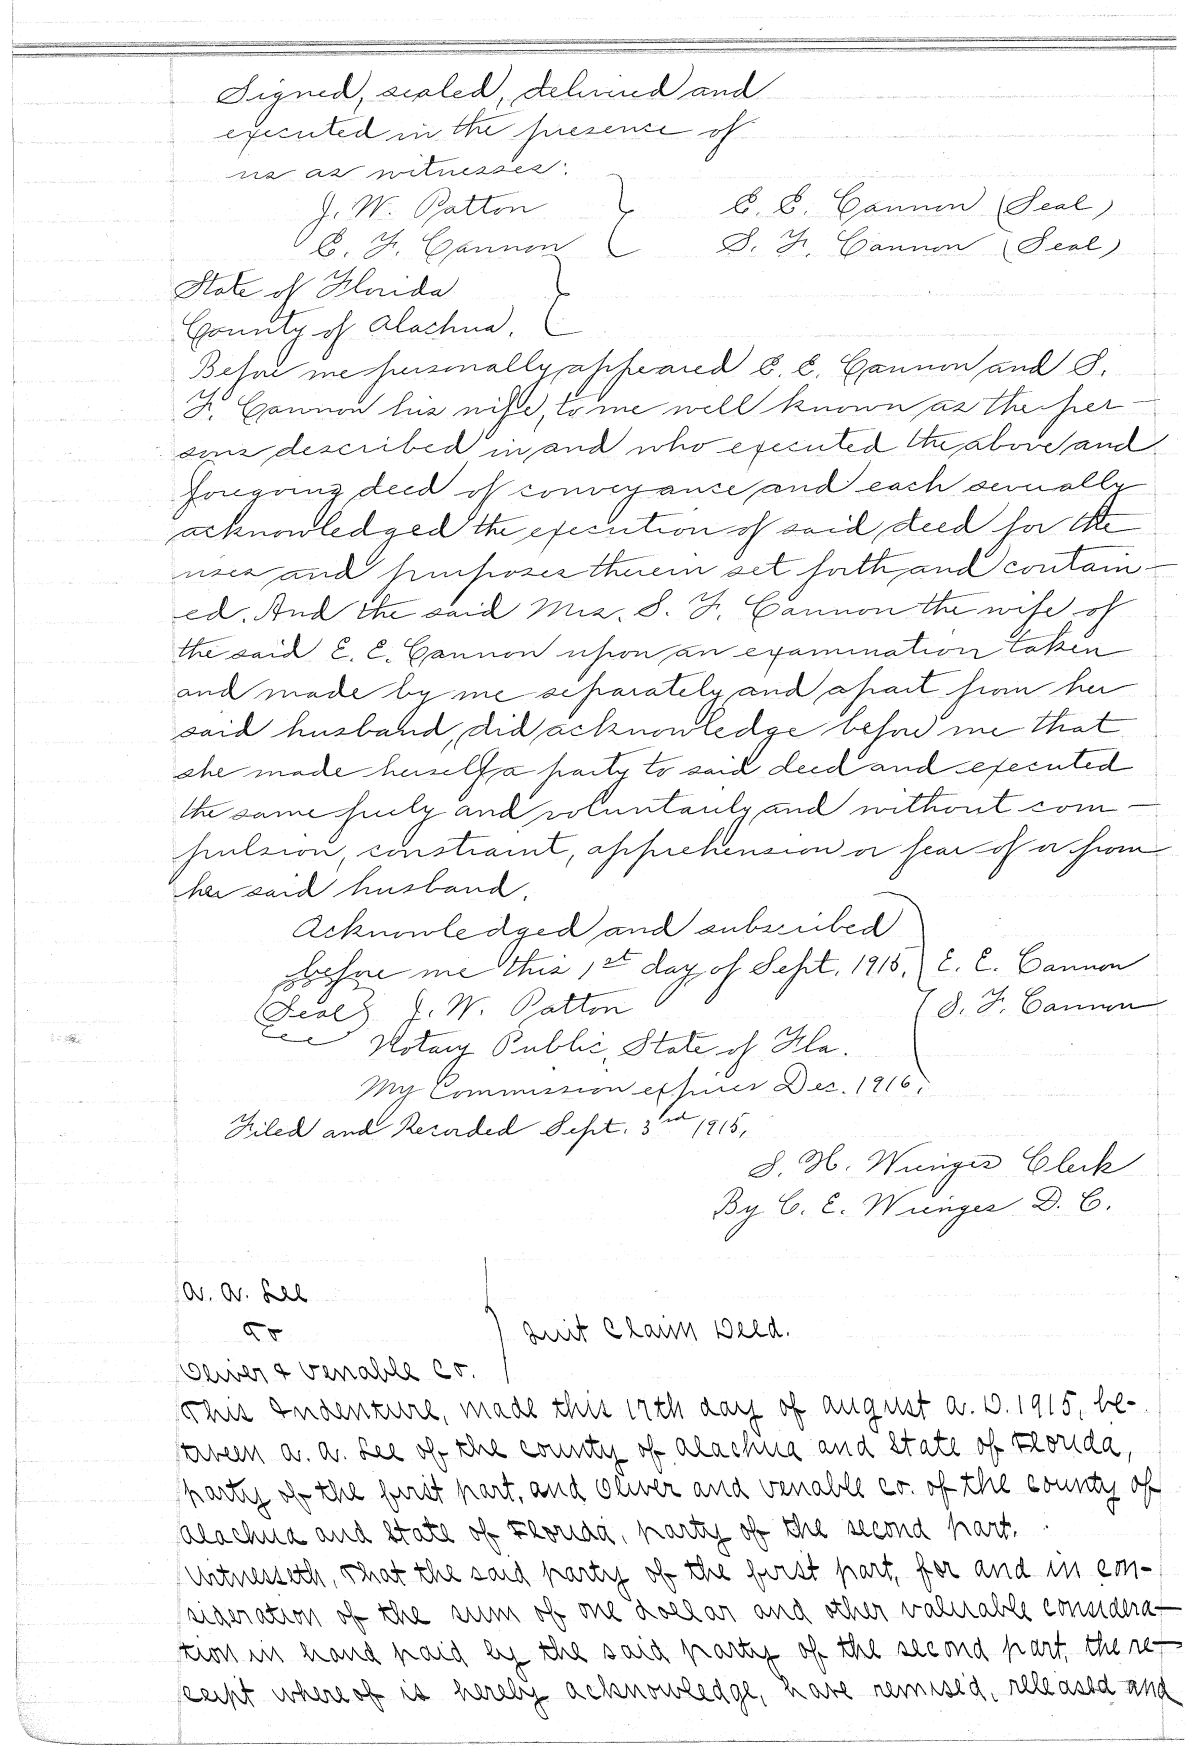 Signed, sealed, delivered and
executed in the presence of
us as witnesses:
J. W. Patton E. E. Cannon (Seal)
C. F. Cannon S. F. Cannon (Seal)
State of Florida
County of Alachua.
Before me personally appeared E. E. Cannon and S.
F. Cannon his wife, to me well known as the per-
sons described in and who executed the above and
foregoing deed of conveyance and each severally
acknowledged the execution of said deed for the
uses and purposes therein set forth and contain-
ed. And the said Mrs. S. F. Cannon the wife of
the said E. E. Cannon upon an examination taken
and made by me separately and apart from her
said husband, did acknowledge before me that
she made herself a party to said deed and executed
the same freely and voluntarily and without com-
pulsion, constraint, apprehension or fear of or from
her said husband.
Acknowledged and subscribed
before me this 1st day of Sept. 1915. E. E. Cannon
(Seal) J. W. Patton S. F. Cannon
Notary Public, State of Fla.
My Commission expires Dec. 1916.
Filed and Recorded Sept. 3rd 1915.
S. H. Wienges Clerk
By C. E. Wienges D. C.
A. A. Lee
To
Quit Claim Deed.
Oliver & Venable Co.
This Indenture, made this 17th day of August A. D. 1915, be-
tween A. A. Lee of the County of Alachua and State of Florida,
party of the first part, and Oliver and Venable Co. of the County of
Alachua and State of Florida, party of the second part.
Witnesseth, That the said party of the first part, for and in con-
sideration of the sum of one dollar and other valuable considera-
tion in hand paid by the said party of the second part, the re-
ceipt whereof is hereby acknowledge, have remised, released and